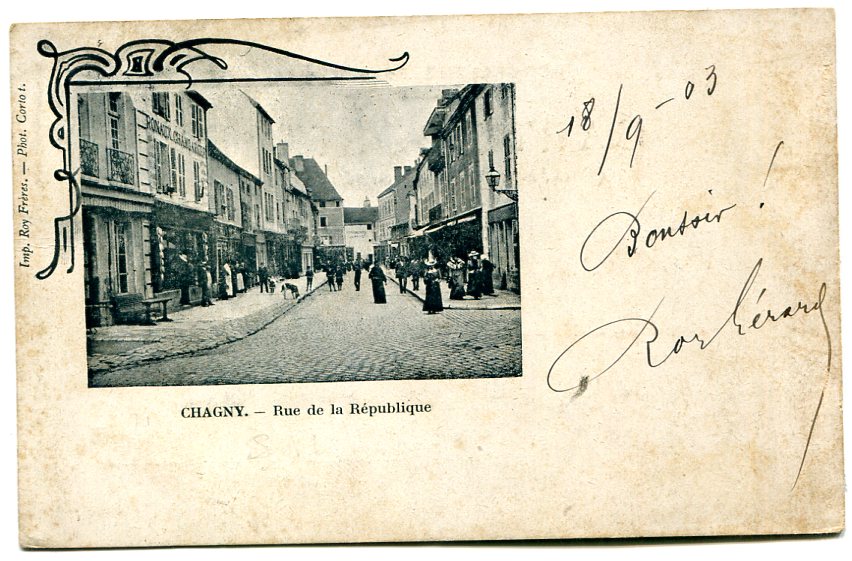 Imp. Roy Frères. — Phot. Cortot.
18/9-03
Bonsoir !
CHAGNY. — Rue de la République